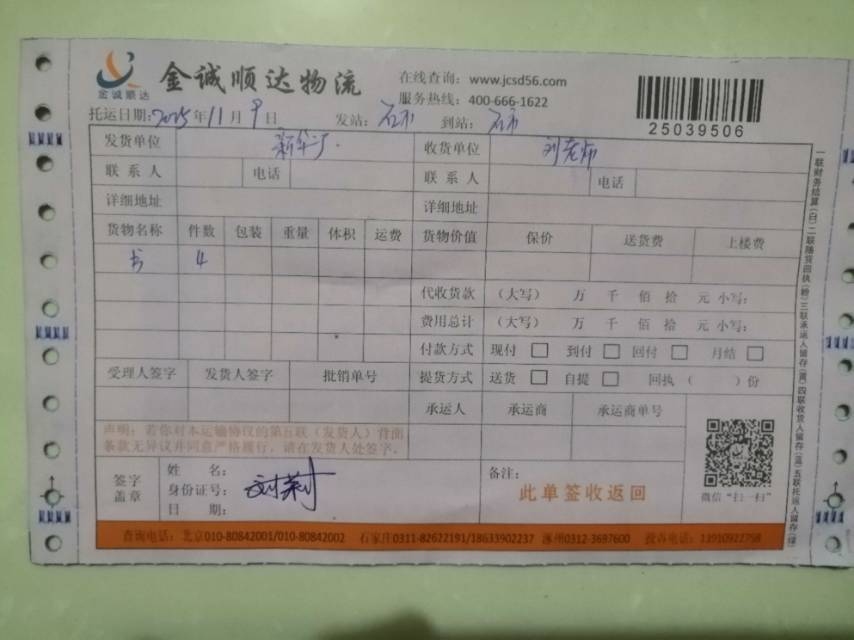 金诚顺达
金诚顺达物流
在线查询：www.jcsd56.com
服务热线：400-666-1622
25039506
托运日期：2025年11月9日 发站：石市 到站：石市
发货单位 新华厂 收货单位 刘老师
联系人 电话 联系人 电话
详细地址 详细地址
货物名称 件数 包装 重量 体积 运费 货物价值 保价 送货费 上楼费
书 4
代收货款 （大写） 万 千 佰 拾 元 小写：
费用总计 （大写） 万 千 佰 拾 元 小写：
付款方式 现付 □ 到付 □ 回付 □ 月结 □
受理人签字 发货人签字 批销单号 提货方式 送货 □ 自提 □ 回执（ ）份
承运人 承运商 承运商单号
声明：若你对本运输协议的第五联（发货人）背面
条款无异议并同意严格履行，请在发货人处签字。
签字
盖章
姓 名：
身份证号：
日 期：
备注：
此单签收返回
微信“扫一扫”
查询电话：北京010-80842001/010-80842002 石家庄0311-82622191/18633902237 涿州0312-3697600 投诉电话：13910922758
一联财务结算（白）二联随货回执（粉）三联承运人留存（黄）四联收货人留存（蓝）五联托运人留存（绿）